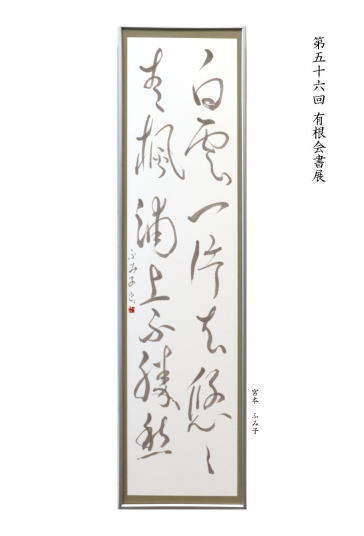 第五十六回 有根会書展
白雲一片去悠〻
青楓浦上不勝愁
ふみ子書
宮本 ふみ子